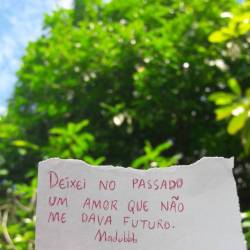 DEIXEI NO PASSADO
UM AMOR QUE NÃO
ME DAVA FUTURO.